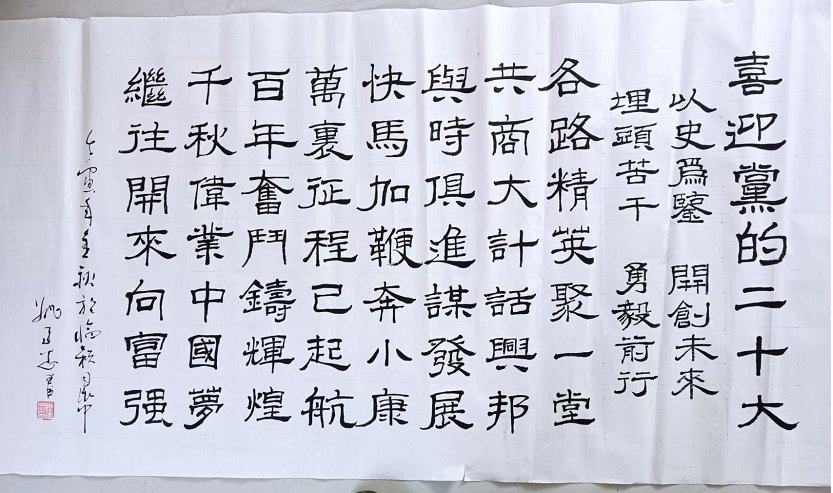 喜迎黨的二十大
以史爲鑒 開創未來
埋頭苦干 勇毅前行
各路精英聚一堂
共商大計話興邦
與時俱進謀發展
快馬加鞭奔小康
萬裏征程已起航
百年奮鬥鑄輝煌
千秋偉業中國夢
繼往開來向富强
壬寅年金秋於臨潁晨中
書